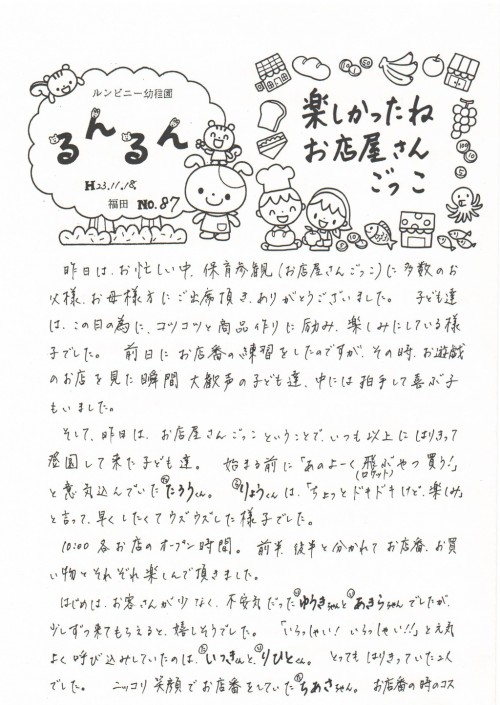 ルンビニー幼稚園
るんるん
H23.11.18
福田 No.87
楽しかったね
お店屋さん
ごっこ
昨日は、お忙しい中、保育参観(お店屋さんごっこ)に多数のお
父様、お母様方にご出席頂き、ありがとうございました。 子ども達
は、この日の為に、コツコツと商品作りに励み、楽しみにしている様
子でした。 前日にお店番の練習をしたのですが、その時、お遊戯
のお店を見た瞬間 大歓声の子ども達、中には拍手して喜ぶ子
もいました。
そして、昨日は、お店屋さんごっこということで、いつも以上にはりきって
登園して来た子ども達。 始まる前に「あのよーく飛ぶやつ買う!」
(ロケット)
と意気込んでいたたろうくん。 りょうくんは、「ちょっとドキドキけど、楽しみ」
と言って、早くしたくてウズウズした様子でした。
10:00 各お店のオープン時間。 前半、後半と分かれてお店番、お買
い物とそれぞれ楽しんで頂きました。
はじめは、お客さんが少なく、不安気だったゆうきちゃんとあきらちゃんでしたが、
少しずつ来てもらえると、嬉しそうでした。 「いらっしゃい! いらっしゃい!!」と元気
よく呼び込みしていたのは、いつきくんと、りひとくん。 とってもはりきっていた2人
でした。 ニッコリ笑顔でお店番をしていたちあさちゃん。 お店番の時のコス